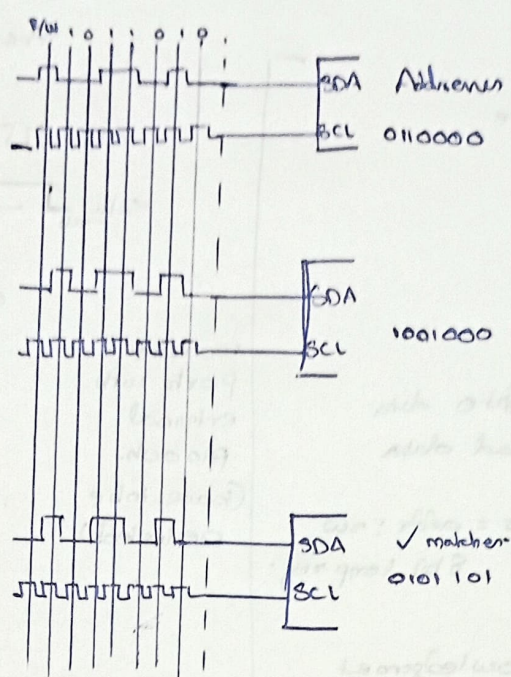 R/W 1 0 1 1 0 1 0
SDA Addresses
SCL 0110000
SDA
SCL 1001000
SDA ✓ matches
SCL 0101101